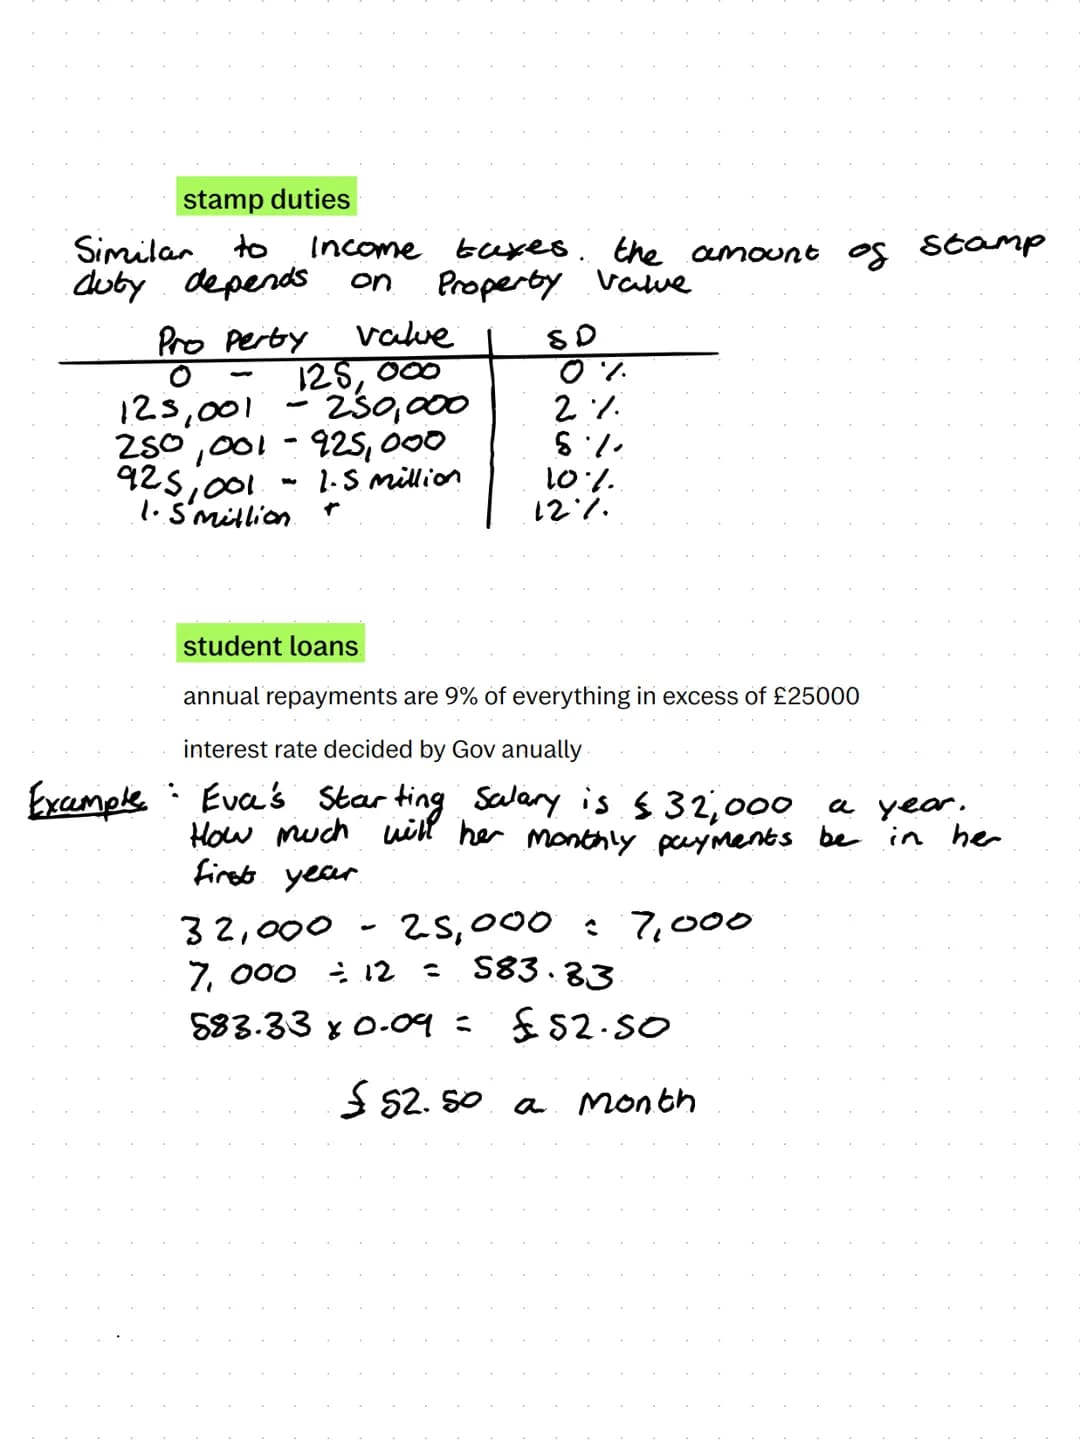 stamp duties
Similar to Income taxes. the amount of stamp
duty depends on Property value
Property value SD
0 - 125,000 0%
125,001 - 250,000 2%
250,001 - 925,000 5%
925,001 - 1.5 million 10%
1.5 million + 12%
student loans
annual repayments are 9% of everything in excess of £25000
interest rate decided by Gov anually
Example : Eva's Starting Salary is £32,000 a year.
How much will her monthly payments be in her
first year
32,000 - 25,000 = 7,000
7,000 ÷ 12 = 583.33
583.33 x 0.09 = £52.50
£52.50 a Month